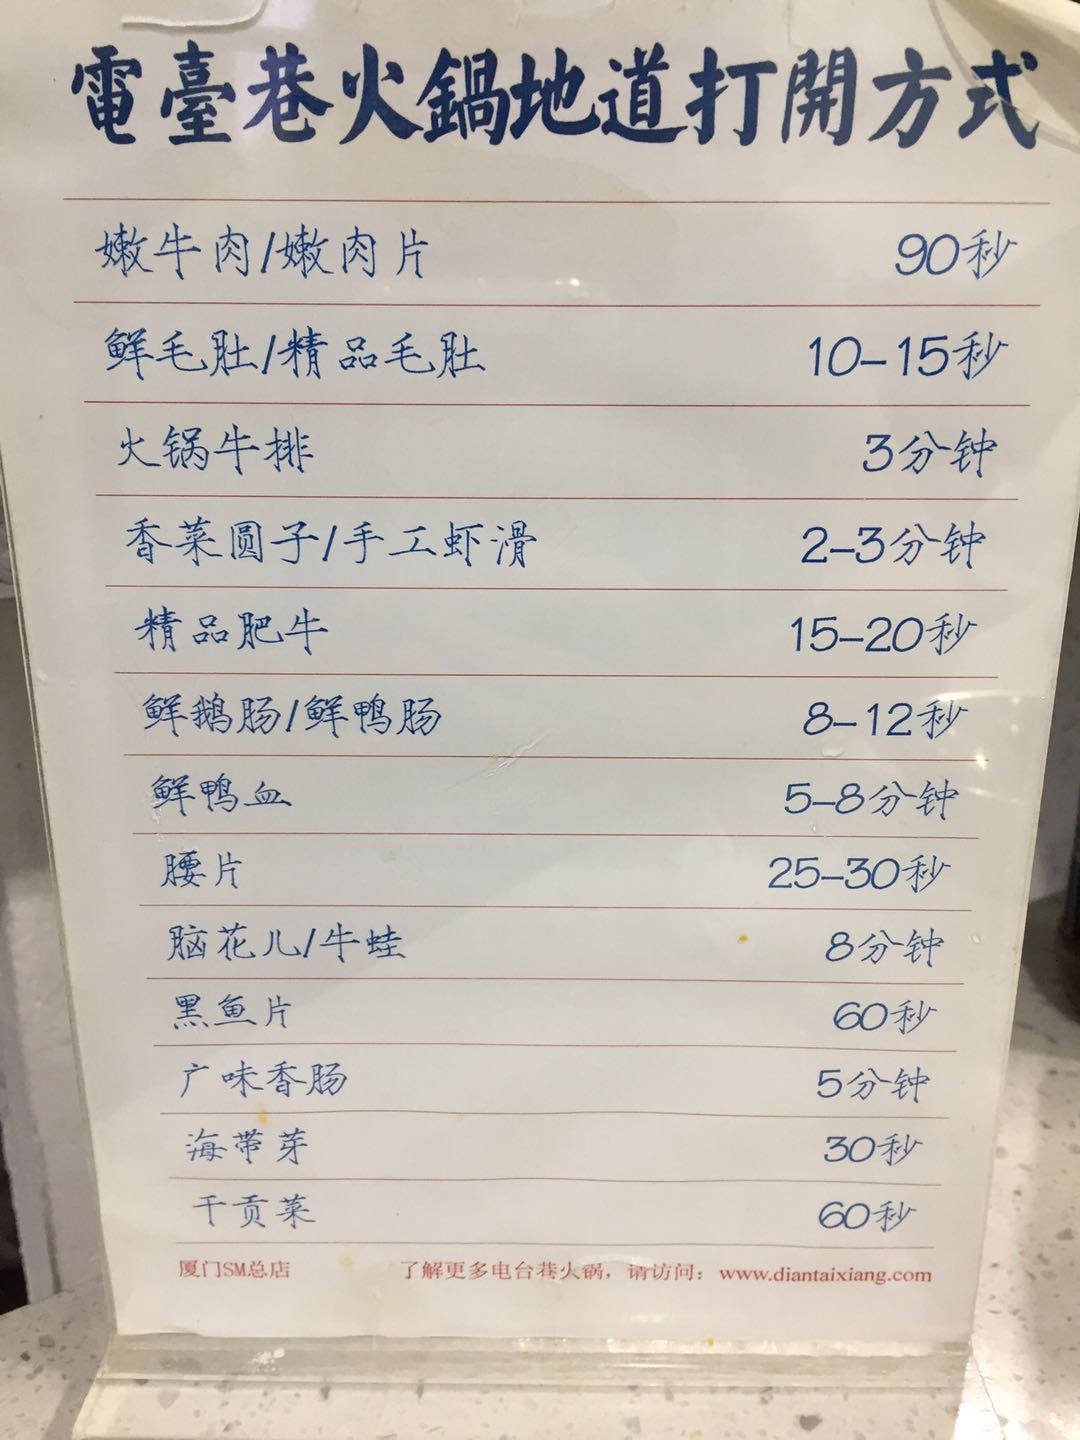 電臺巷火鍋地道打開方式
嫩牛肉/嫩肉片 90秒
鲜毛肚/精品毛肚 10-15秒
火锅牛排 3分钟
香菜圆子/手工虾滑 2-3分钟
精品肥牛 15-20秒
鲜鹅肠/鲜鸭肠 8-12秒
鲜鸭血 5-8分钟
腰片 25-30秒
脑花儿/牛蛙 8分钟
黑鱼片 60秒
广味香肠 5分钟
海带芽 30秒
干贡菜 60秒
厦门SM总店 了解更多电台巷火锅，请访问：www.diantaixiang.com